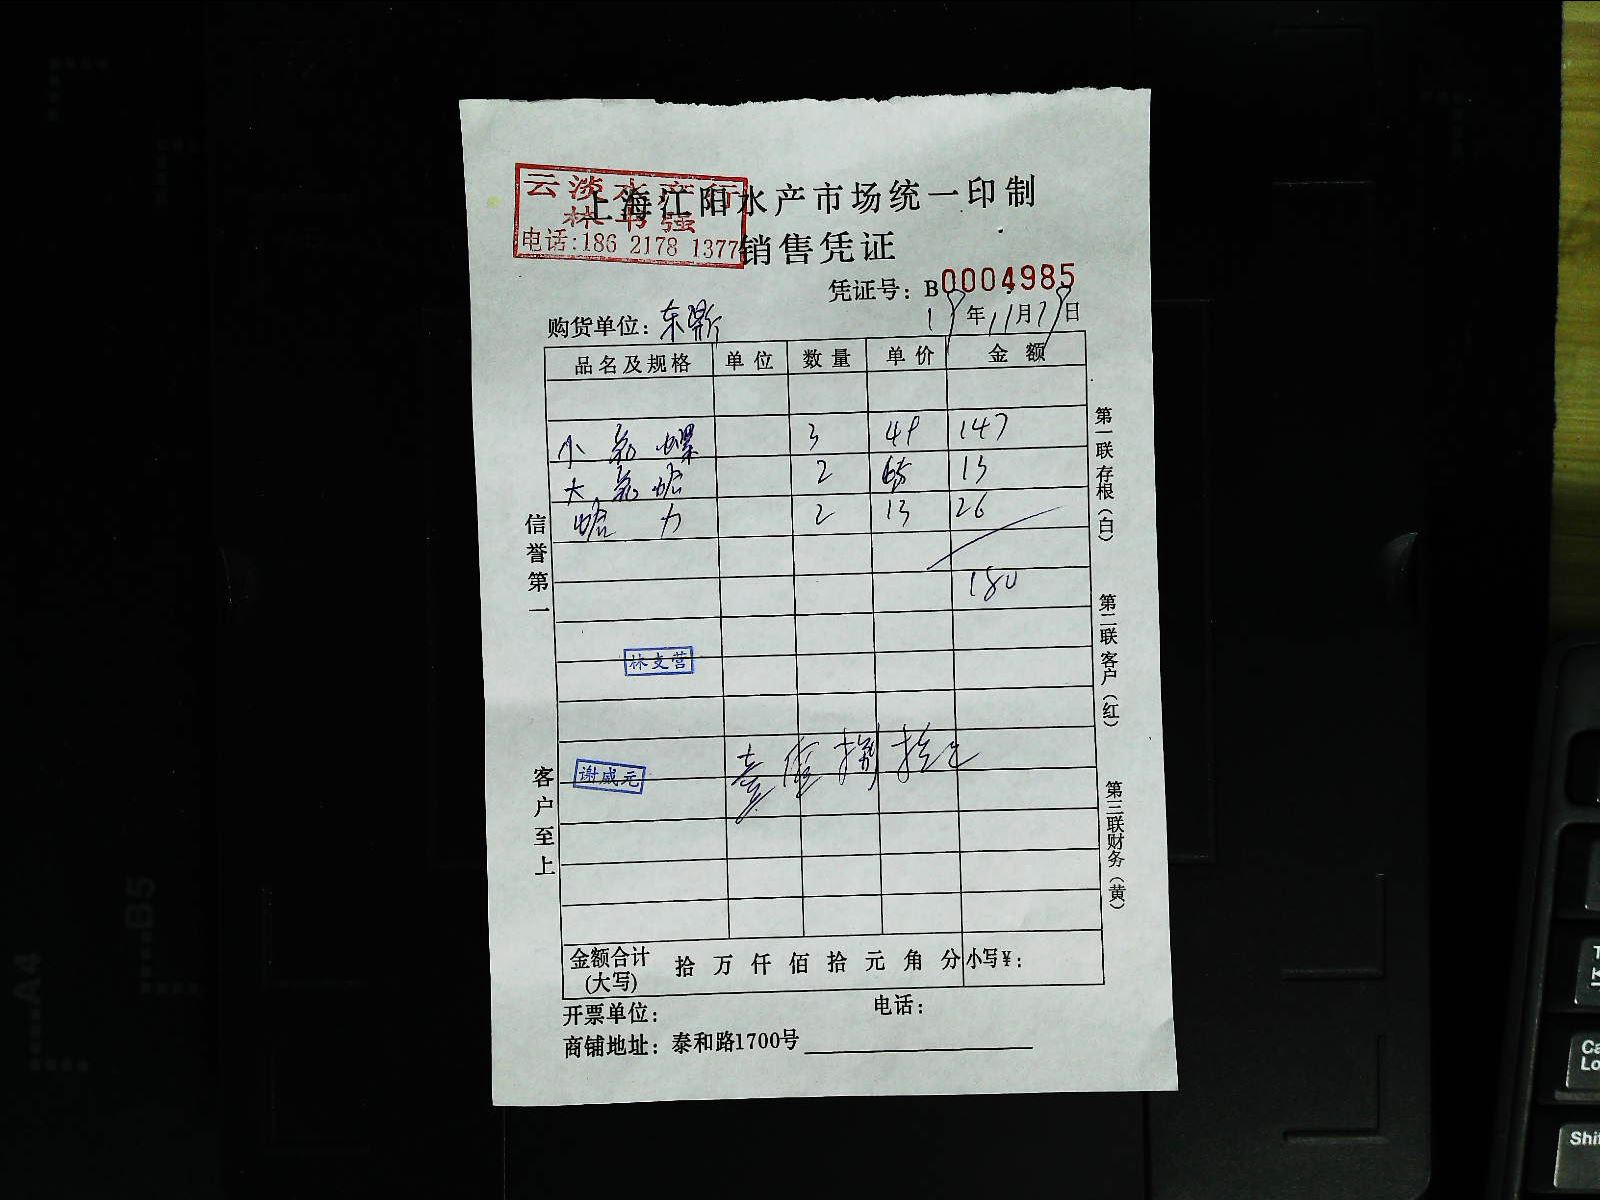 云淡水产行
上海江阳水产市场统一印制
电话:186 2178 1377
销售凭证
凭证号: B0004985
购货单位: 东
年11月 日
品名及规格 单位 数量 单价 金额
小 螺 3 49 147
大 蛤 2 6.5 13
蛤 力 2 13 26
180
林支营
谢威元
壹佰捌拾元
金额合计(大写) 拾 万 仟 佰 拾 元 角 分 小写¥:
开票单位: 电话:
商铺地址: 泰和路1700号
信誉第一
客户至上
第一联存根(白)
第二联客户(红)
第三联财务(黄)
A4
B5
Shi